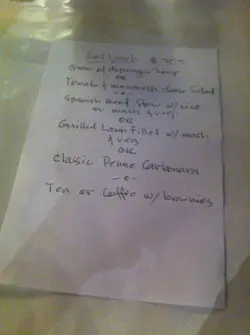 Set Lunch
Cream of Asparagus Soup
OR
Tomato & mozzarella cheese Salad
-o-
Spanish Beef Stew w/ rice
or mash & veg.
OR
Grilled Lamb fillet w/ mash
& veg
OR
Classic Penne Carbonara
-o-
Tea or Coffee w/ brownies